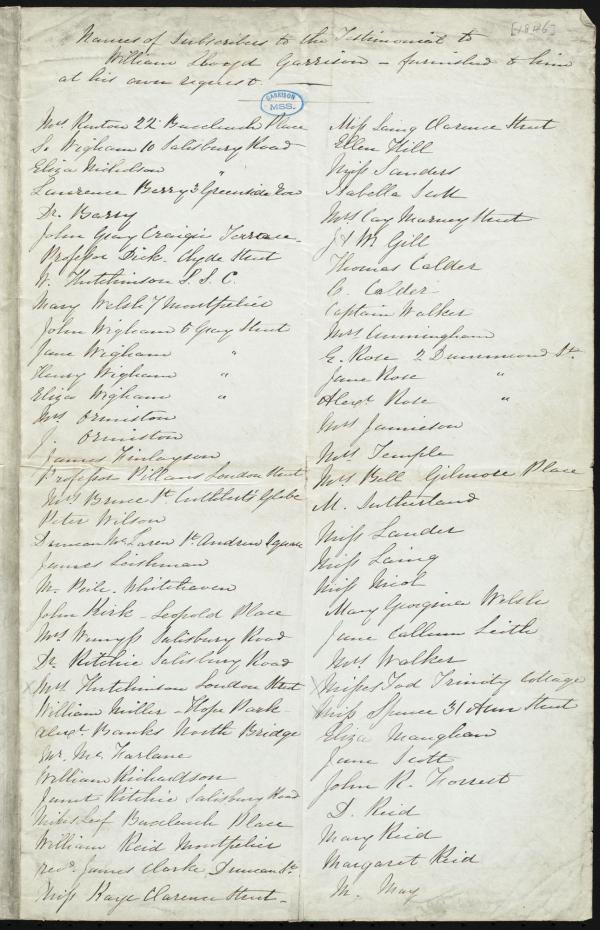 [1846]
Names of Subscribers to the Testimonial to
William Lloyd Garrison - furnished to him
at his own request.
GARRISON
MSS.
Mrs. Renton 22 Buccleuch Place
Wigham 10 Salisbury Road
Eliza Nicholson "
Lawrence Berry 3 Greenside Row
Dr. Barry
John Gray Craigie Terrace
Professor Dick. Clyde Street
W. Hutchinson S.S.C.
Mary Welsh 7 Montpelier
John Wigham 6 Gray Street
Jane Wigham "
Henry Wigham "
Eliza Wigham "
Mrs. Ormiston
J. Ormiston
James Finlayson
Professor Pillans London Street
Mrs Bruce St Cuthbert's Glebe
Peter Wilson
Duncan McLaren St. Andrew Square
James Leishman
M. Peile. Whitehaven
John Kirk - Leopold Place
Mrs Wemyss Salisbury Road
Dr. Ritchie Salisbury Road
X Mrs Hutchinson London Street
William Miller - Hope Park
Alexr. Banks North Bridge
Mr. Mc.Farlane
William Richardson
Janet Ritchie Salisbury Road
Leaf Buccleuch Place
William Reid Montpelier
Revd. James Clarke Duncan St.
Miss Kaye Clarence Street
Miss Laing Clarence Street
Ellen Hill
Miss Sanders
Isabella Scott
Mrs Cay Street
J & W Gill
Thomas Calder
C. Calder
Captain Walker
Mrs Cunningham
G. Rose 2 Drummond St.
Jane Rose "
Alexr Rose "
Mrs Jamieson
Mrs Temple
Mrs Bell Gilmore Place
M. Sutherland
Miss Lauder
Miss Laing
Miss Nicol
Mary Georgina Welsh
Jane Callum Leith
Mrs Walker
X Misses Tod Trinity Cottage
X Miss Spence 31 Ann Street
Eliza Maughan
Jane Scott
John R. Forrest
D. Reid
Mary Reid
Margaret Reid
M. May